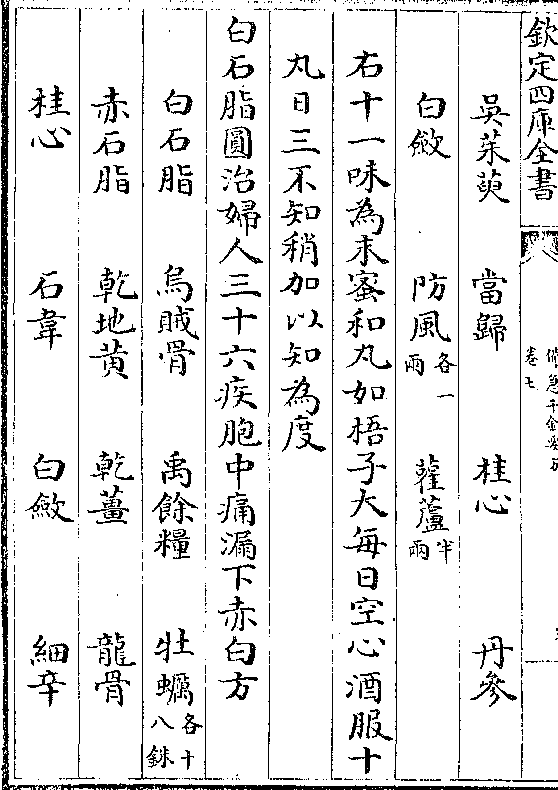 欽定四庫全書
卷七
吳茱萸 當歸 桂心 丹參
白斂 防風各一兩 雚蘆半兩
右十一味為末蜜和丸如梧子大每日空心酒服十
丸日三不知稍加以知為度
白石脂圓治婦人三十六疾胞中痛漏下赤白方
白石脂 烏賊骨 禹餘糧 牡蠣各十八銖
赤石脂 乾地黃 乾薑 龍骨
桂心 石韋 白斂 細辛